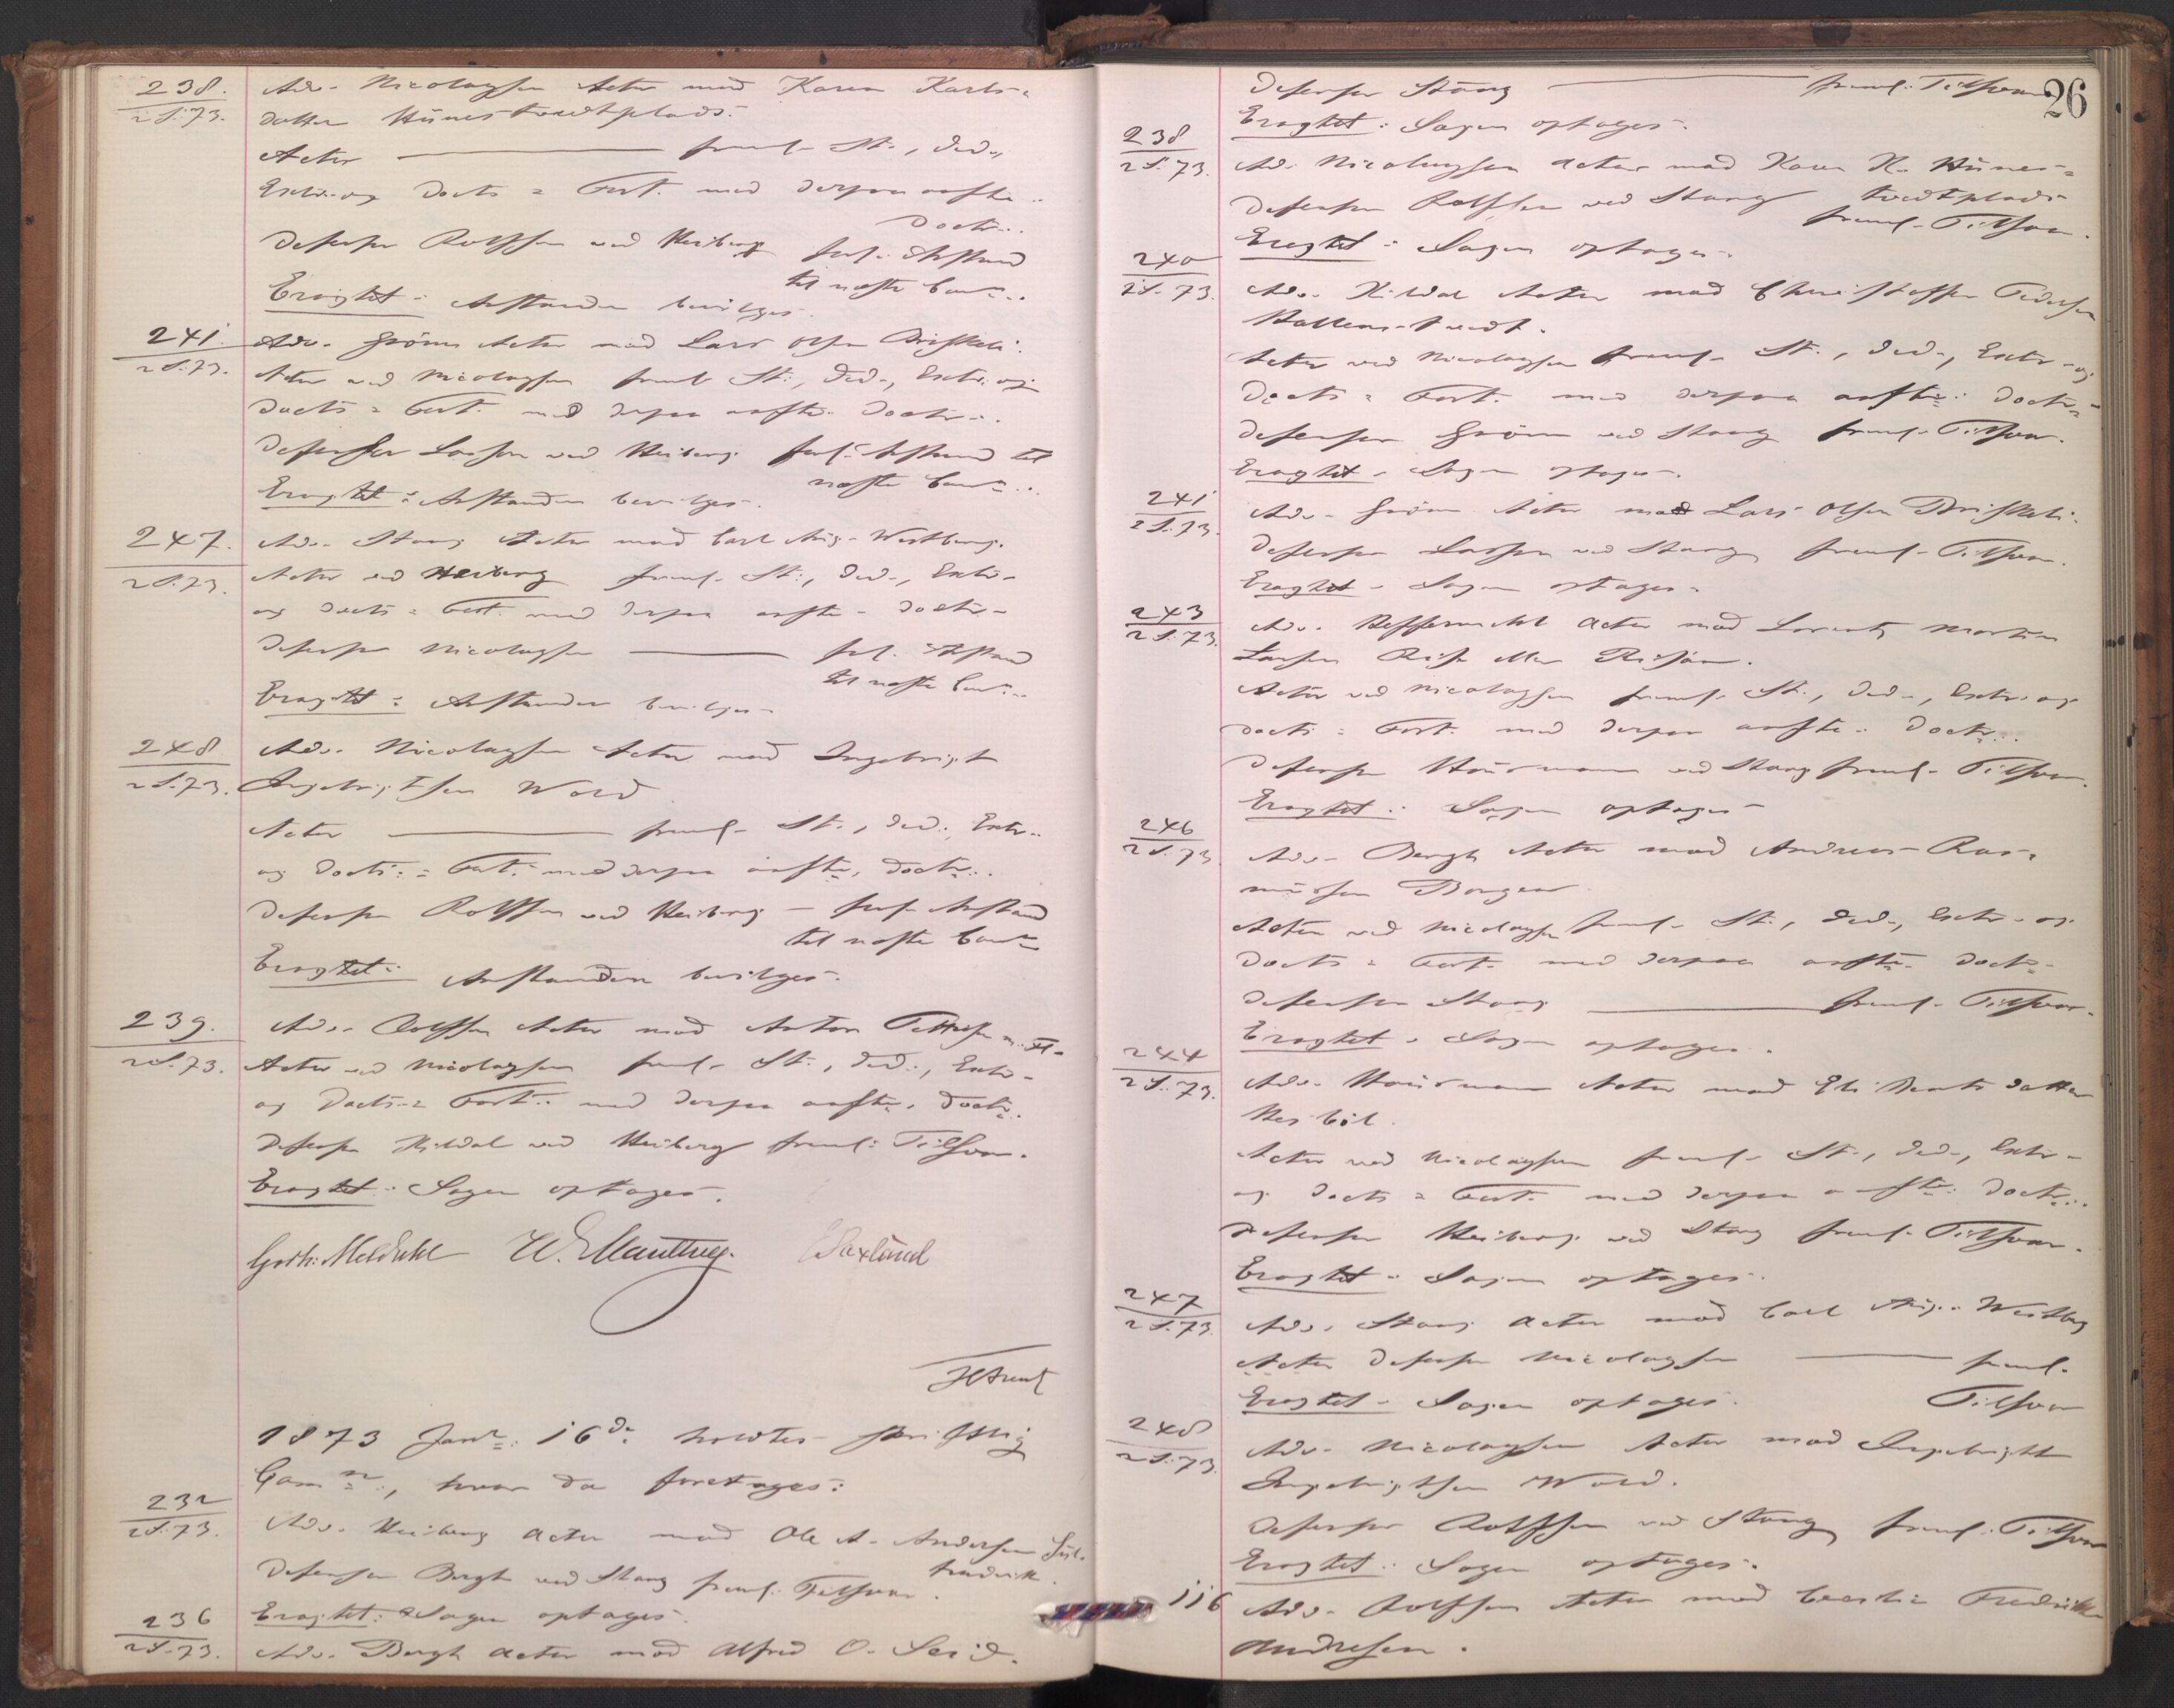 238.
2 S. 73.
Adv. Nicolaysen Actor mod Karen Karls-
datter Hünestvedtplads.
Actor — freml. St., Ded.,
Extr. og Docts = Cert. med derpaa ansfte
Doctr..
Defensor Rolfsen ved Heiberg forl. Anstand
til næste Cour..
Eragtet: Anstanden bevilges.
241.
2 S. 73.
Adv. Grönn Actor mod Lars Olsen
Actor ved Nicolaysen freml. St., Ded., Extr. og
Docts = Cert. med derpaa ansfte. Doctr..
Defensor Lassen ved Heiberg forl. Anstand til
næste Cour..
Eragtet: Anstanden bevilges.
247.
2 S. 73.
Adv. Stang Actor mod Carl Aug. Westberg.
Actor ved Heiberg freml. St., Ded., Extr.
og Docts = Cert. med derpaa ansfte. Doctr.
Defensor Nicolaysen — forl. Anstand
til næste Cour..
Eragtet: Anstanden bevilges.
248
2 S. 73.
Adv. Nicolaysen Actor mod Ingebrigt
Ingebrigtsen Wold
Actor — freml. St., Ded., Extr.
og Docts. = Cert. med derpaa ansfte. Doctr..
Defensor Rolfsen ved Heiberg — forl. Anstand
til næste Cour.
Eragtet: Anstanden bevilges.
239.
2 S. 73.
Adv. Rolfsen Actor mod Anton m. fl.
Actor ved Nicolaysen freml. St., Ded., Extr.
og Docts. = Cert. med derpaa ansfte. Doctr.
Defensor Hildal ved Heiberg freml. Tilsvar.
Eragtet: Sagen optages.
Goth. Meldahl W. E. Manthey.
1873 Janr. 16de holdtes skriftlig
Sam., hvor da foretoges:
232
2 S. 73.
Adv. Heiberg Actor mod Ole A. Andersen
Defensor Bergh ved Stang freml. Tilsvar.
Eragtet: Sagen optages.
236
2 S. 73.
Adv. Bergh Actor mod Alfred O.
26
Defensor Stang — freml. Tilsvar
Eragtet: Sagen optages.
238
2 S. 73.
Adv. Nicolaysen Actor mod Karen K. Hünes-
tvedtplads
Defensor Rolfsen ved Stang freml. Tilsvar.
Eragtet: Sagen optages.
240
2 S. 73.
Adv. Hildal Actor mod Christoffer Pedersen
Actor ved Nicolaysen freml. St., Ded., Extr. og
Docts = Cert. med derpaa ansfte. Doctr.
Defensor Grönn ved Stang freml. Tilsvar.
Eragtet: Sagen optages.
241
2 S. 73.
Adv. Grönn Actor mod Lars Olsen
Defensor Lassen ved Stang freml. Tilsvar.
Eragtet: Sagen optages.
243
2 S. 73.
Adv. Hefferniehl Actor mod Lorentz Martin
Larsen eller
Actor ved Nicolaysen freml. St., Ded., Extr. og
Docts = Cert. med derpaa ansfte. Doctr..
Defensor Hansmann ved Stang freml. Tilsvar.
Eragtet: Sagen optages
246
2 S. 73.
Adv. Bergh Actor mod Andreas Ras-
mussen Borgen
Actor ved Nicolaysen freml. St., Ded., Extr. og
Docts = Cert. med derpaa ansfte. Doctr.
Defensor Stang — freml. Tilsvar.
Eragtet: Sagen optages.
244
2 S. 73.
Adv. Hansmann Actor mod Eli datter
Actor ved Nicolaysen freml. St., Ded., Extr.
og Docts = Cert. med derpaa ansfte. Doctr..
Defensor Heiberg ved Stang freml. Tilsvar.
Eragtet: Sagen optages.
247
2 S. 73.
Adv. Stang Actor mod Carl Aug. Westberg
Actor Defensor Nicolaysen — freml.
Tilsvar
Eragtet: Sagen optages.
248
2 S. 73.
Adv. Nicolaysen Actor mod Ingebrigt
Ingebrigtsen Wold.
Defensor Rolfsen ved Stang freml. Tilsvar
Eragtet: Sagen optages.
116
Adv. Rolfsen Actor mod Fredrikke
Andresen.